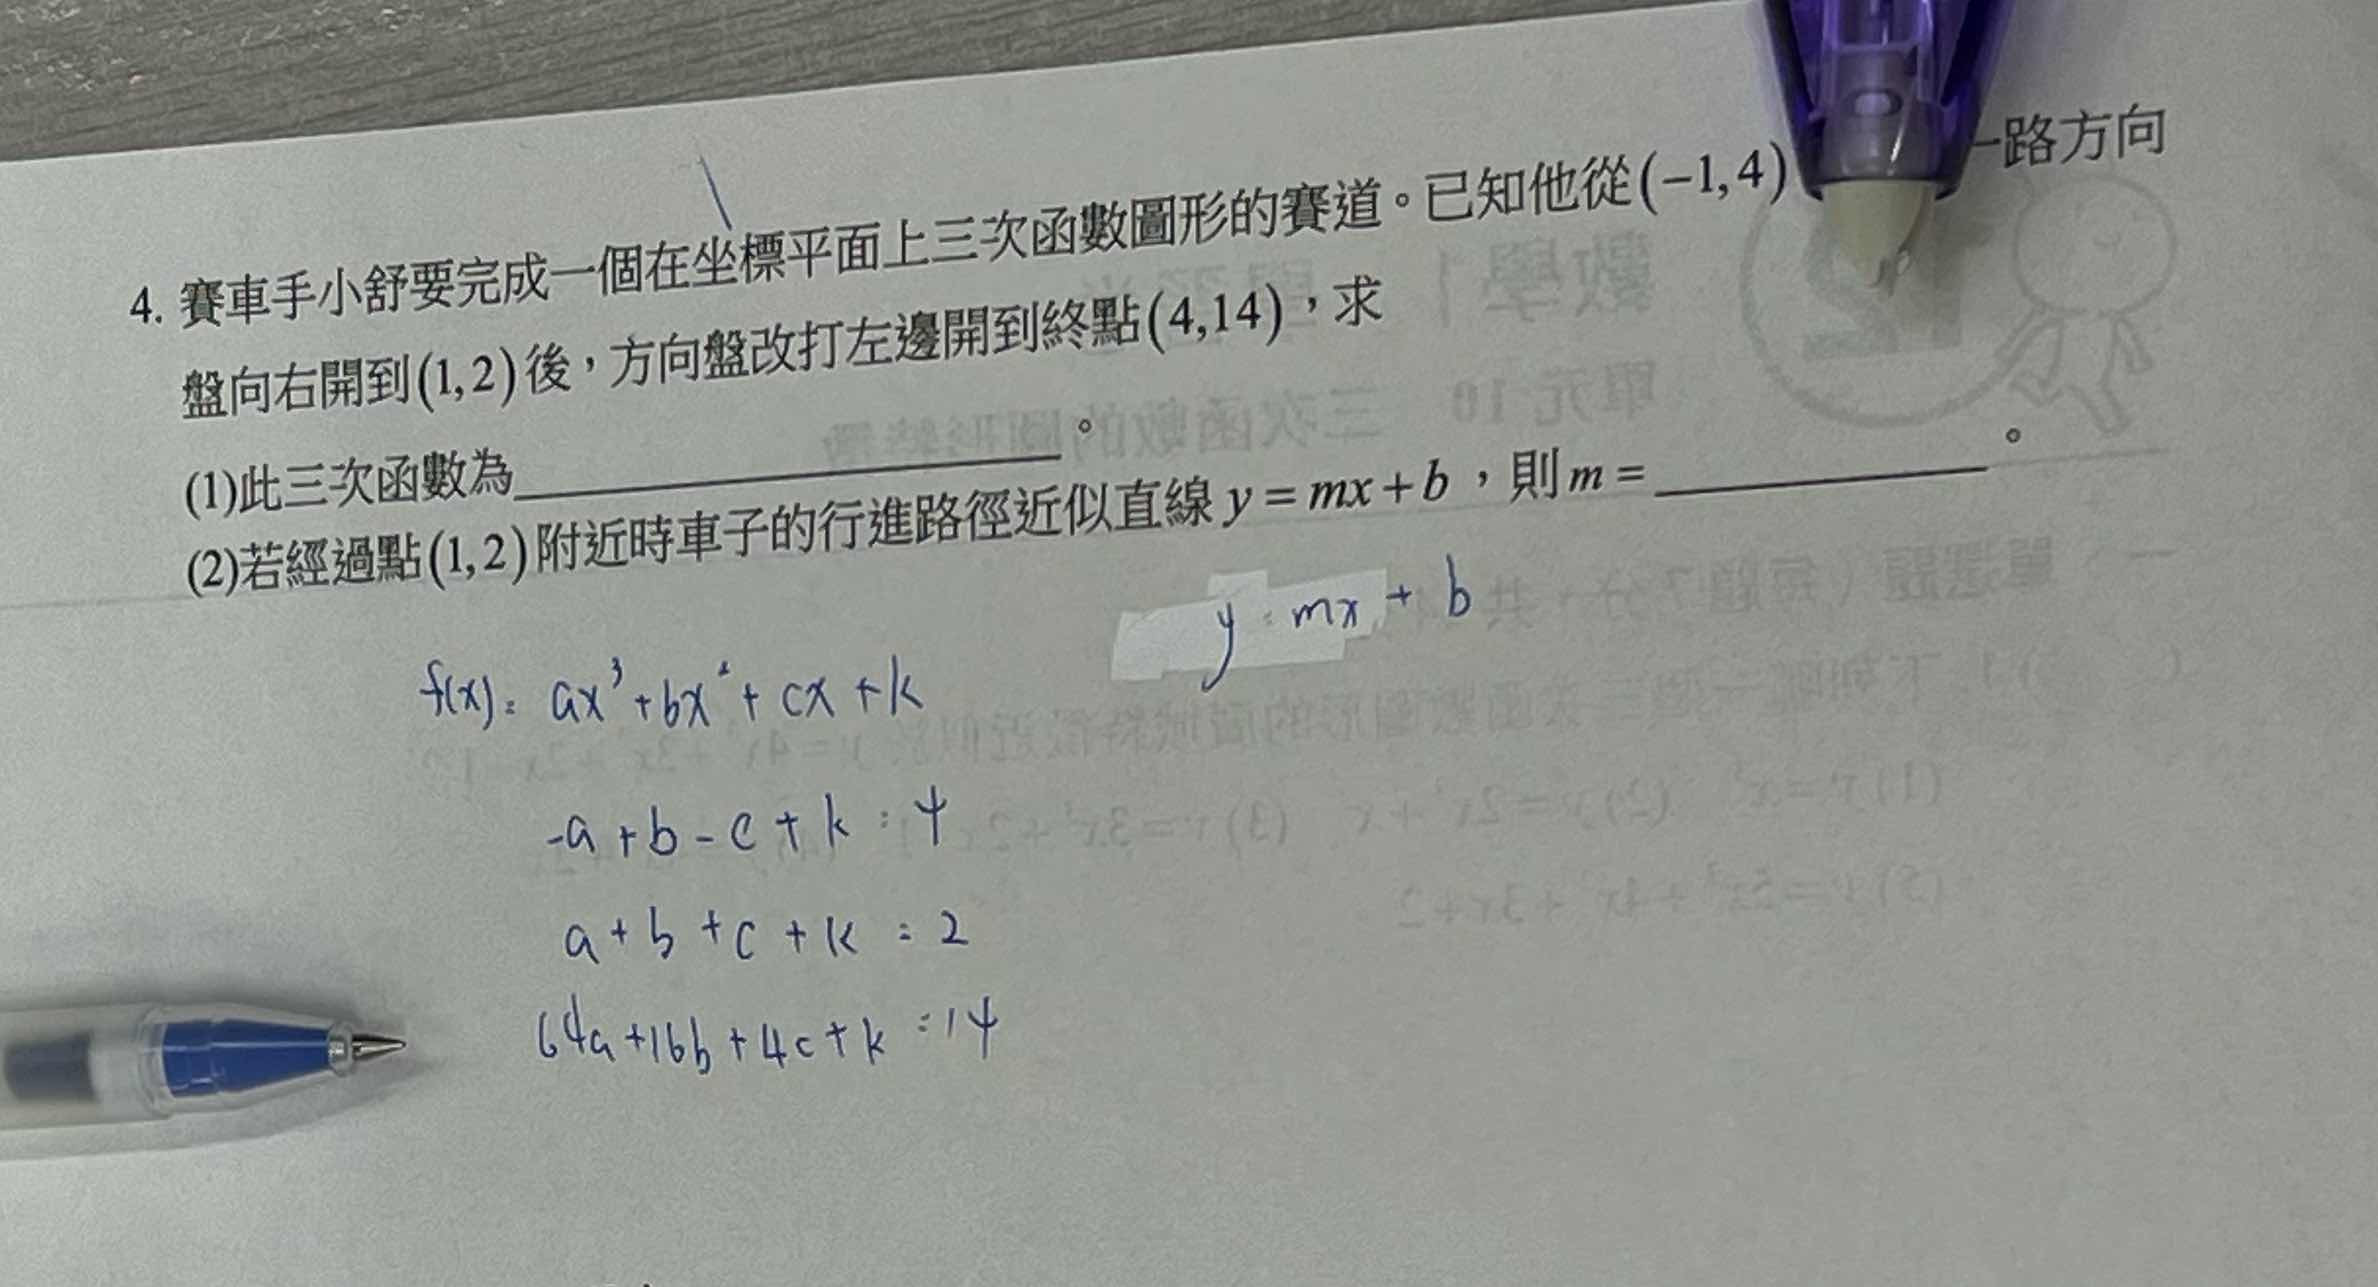 4. 賽車手小舒要完成一個在坐標平面上三次函數圖形的賽道。已知他從(−1,4) 一路方向
盤向右開到(1,2)後，方向盤改打左邊開到終點(4,14)，求
(1)此三次函數為＿＿＿＿＿＿＿＿。
(2)若經過點(1,2)附近時車子的行進路徑近似直線 y = mx + b，則 m = ＿＿＿＿＿＿。
y = mx + b
f(x) = ax³ + bx² + cx + k
-a + b - c + k = 4
a + b + c + k = 2
64a + 16b + 4c + k = 14
數學1
單元10 三次函數的圖形特徵
一、單選題（每題7分，共